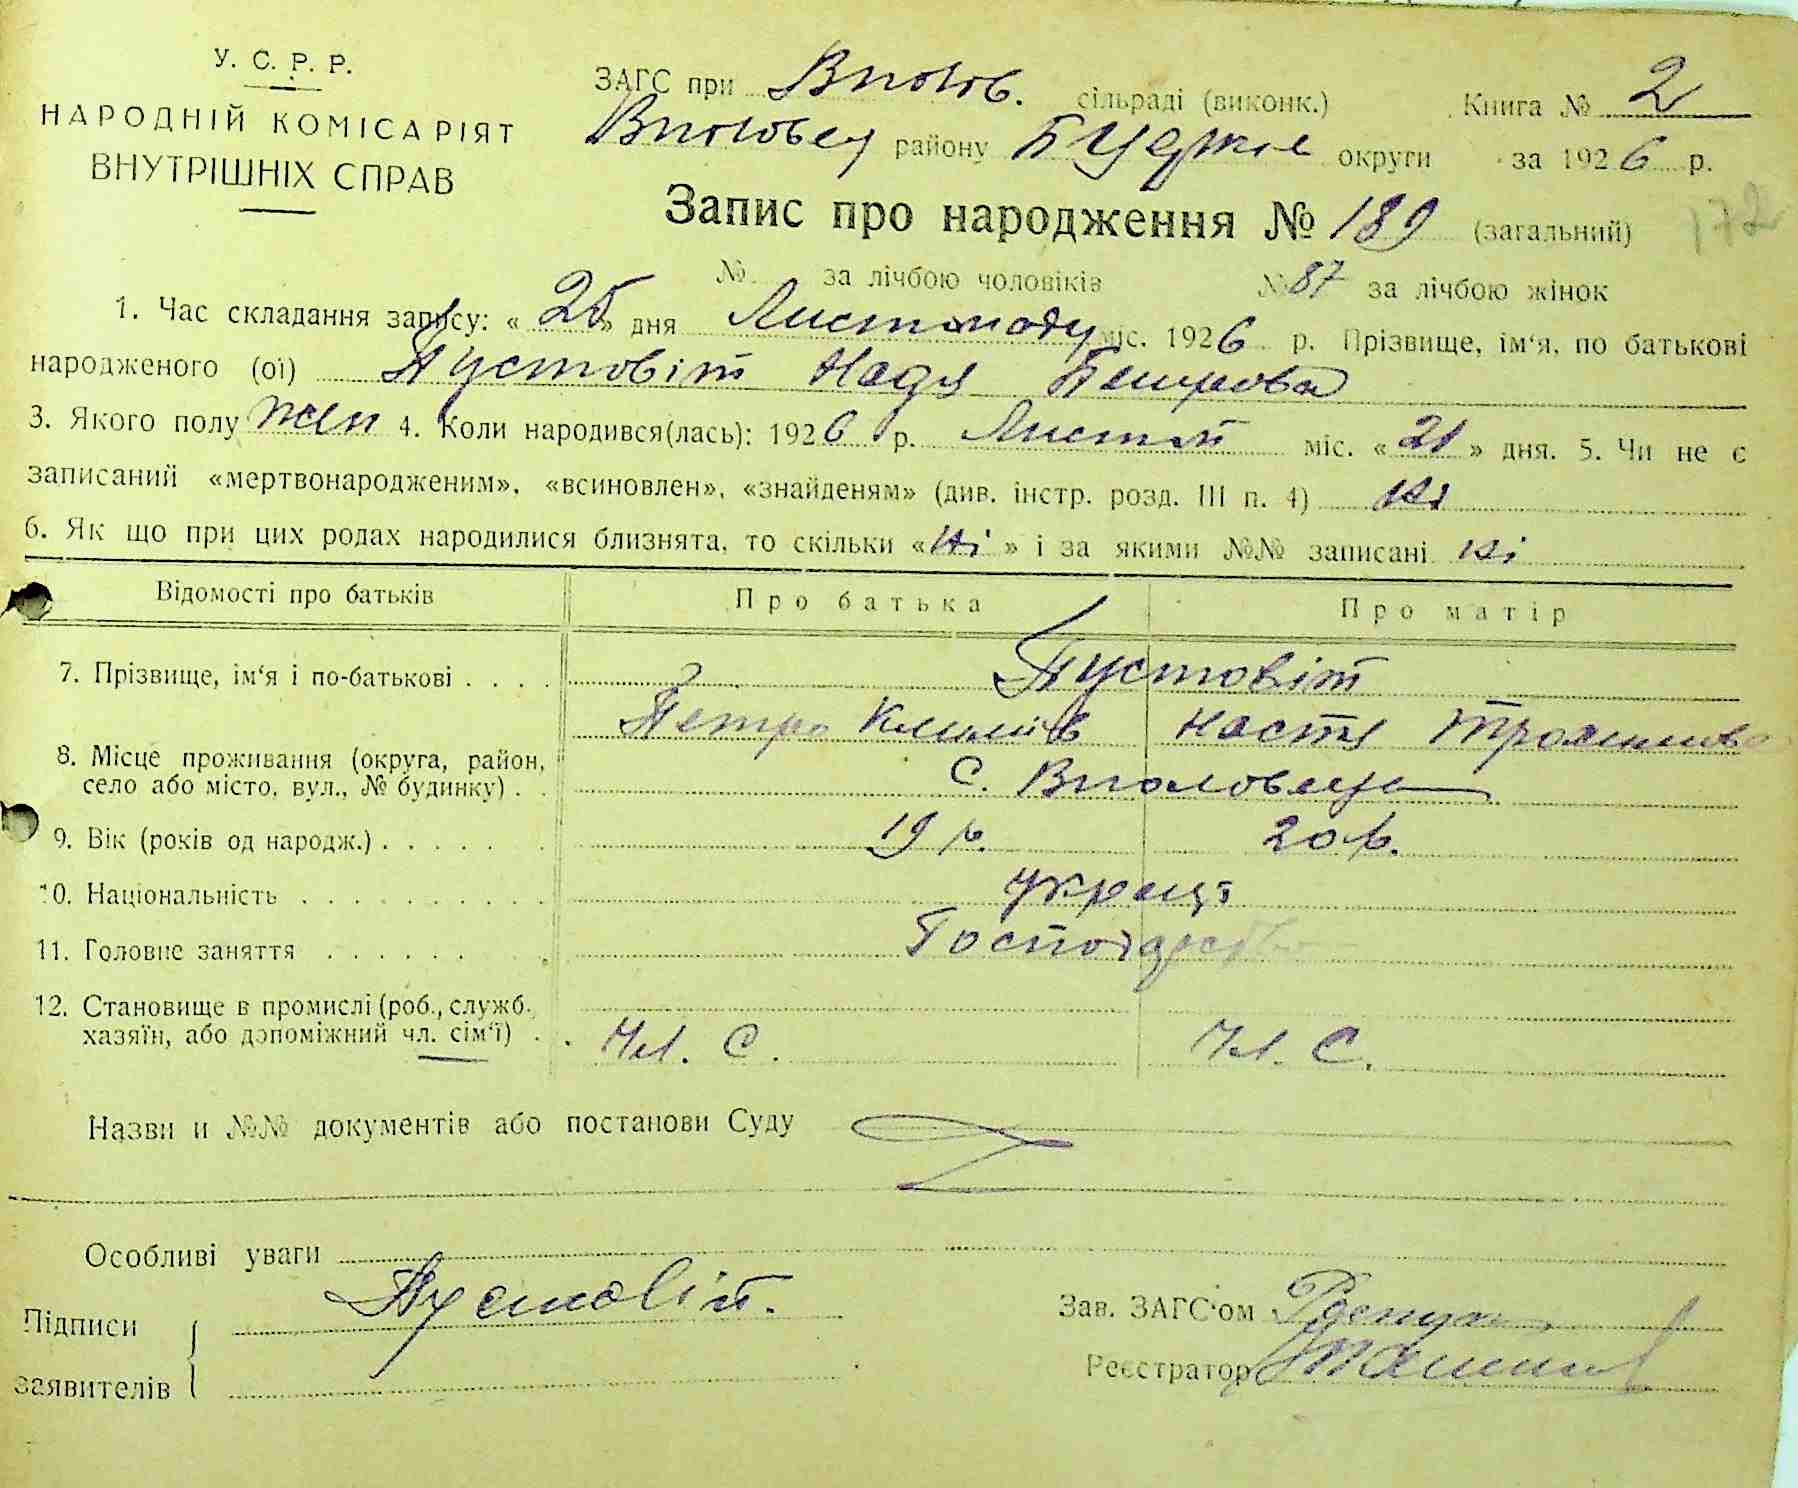 У. С. Р. Р.
НАРОДНІЙ КОМІСАРІЯТ
ВНУТРІШНІХ СПРАВ
ЗАГС при сільраді (виконк.) Книга № 2
району округи за 1926 р.
Запис про народження № 189 (загальний)
172
№ за лічбою чоловіків № 87 за лічбою жінок
1. Час складання запису: « 25 » дня Листопаду міс. 1926 р. Прізвище, ім'я, по батькові
народженого (ої) Пустовіт Надя Петрова
3. Якого полу жін 4. Коли народився(лась): 1926 р. Листоп міс. « 21 » дня. 5. Чи не є
записаний «мертвонародженим», «всиновлен», «знайденям» (див. інстр. розд. III п. 4) ні
6. Як що при цих родах народилися близнята, то скільки « ні » і за якими №№ записані ні
Відомості про батьків Про батька Про матір
7. Прізвище, ім'я і по-батькові . . . . Пустовіт
Петро Климів Настя Трохимова
8. Місце проживання (округа, район,
село або місто, вул., № будинку) . . С.
9. Вік (років од народж.) . . . . . 19 р. 20 р.
10. Національність . . . . . . . . . . українці
11. Головне заняття . . . . . . Господарство
12. Становище в промислі (роб., служб.,
хазяїн, або допоміжний чл. сім'ї) . . Чл. С. Чл. С.
Назви и №№ документів або постанови Суду
Особливі уваги
Підписи Пустовіт. Зав. ЗАГС'ом
заявителів Реєстратор